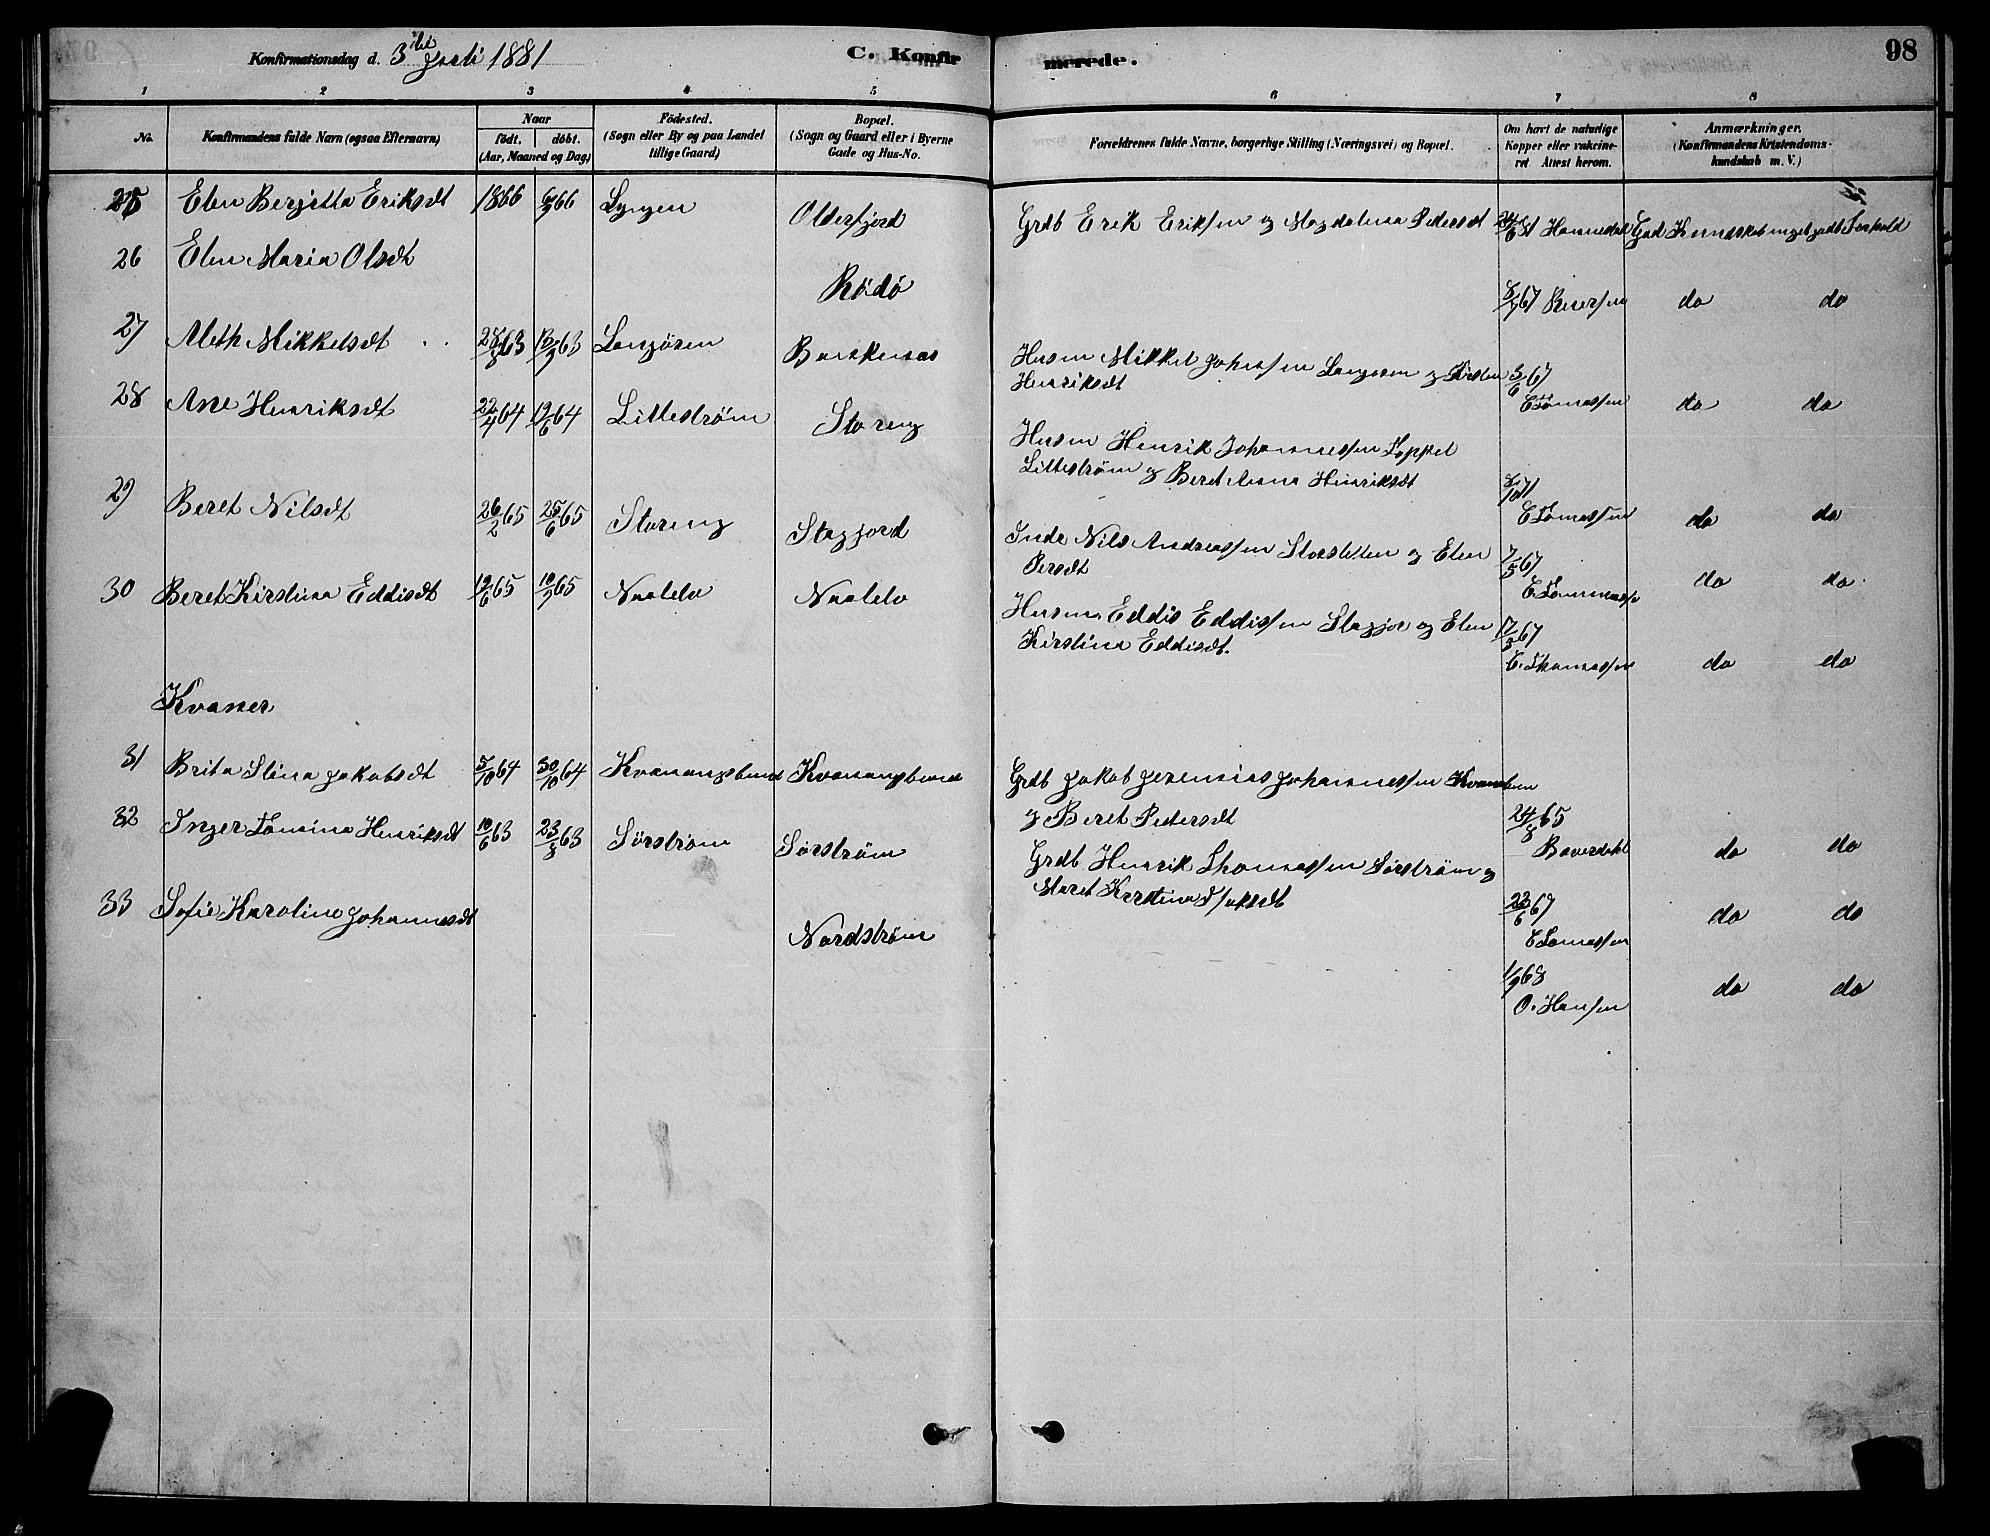 98
Konfirmationsdag d. 3die Juli 1881 C. Konfirmerede.
1 2 3 4 5 6 7 8
No. Konfirmandens fulde Navn (ogsaa Efternavn)
Naar
födt. döbt.
(Aar, Maaned og Dag)
Födested.
(Sogn eller By og paa Landet
tillige Gaard)
Bopæl.
(Sogn og Gaard eller i Byerne
Gade og Hus-No.
Forældrenes fulde Navne, borgerlige Stilling (Næringsvei) og Bopæl.
Om havt de naturlige
Kopper eller vakcine-
ret Attest herom.
Anmærkninger.
(Konfirmandens Kristendoms-
kundskab m. V.)
25 Elen Berjitta Eriksdt 1866 66 Lyngen Olderfjord Grdb Erik Eriksen og Magdalena Pedersdt God Kundskab meget godt Forhold
26 Elen Maria Olsdt Rödö 67 Beiersen do do
27 Meth Mikkelsdt 28/8 63 13/9 63 Langören Baskenæs Husm Mikkel Johansen Langören og Kirsten
Henriksdt 3/6 67
E Tomassen do do
28 Ane Henriksdt 22/4 64 19/6 64 Littestrøm Storeng Husm Henrik Johannessen Toppel
Littestrøm og Beret Anna Henriksdt 71
E Tomassen do do
29 Beret Nilsdt 26/2 65 25/6 65 Storeng Stagjord Inde Nils Andreassen Storsletten og Elen
Persdt 7/5 67
E Tommass do do
30 Beret Kirstina Eddisdt 19/6 65 10/9 65 Naalelv Naalelv Husm Eddis Eddissen Stagjor og Elen
Kirstina Eddisdt. 67
E. Thomassen do do
Kvæner
31 Brita Stina Jakobsdt 5/10 64 30/10 64 Kvænangsbund Kvænangbund Grdb Jakob Jeremias Johannessen Kvænbun
og Beret Pedersdt 24/8 65
Baverdahl do do
32 Inger Tomina Henriksdt 10/6 63 23/8 63 Sörström Sörström Grdb Henrik Thomassen Sörström og
Maret Kirstina Isaksdt 23/6 67
E Tomassen do do
33 Sofie Karoline Johannesdt Nordström 1/9 68
O. Hansen do do